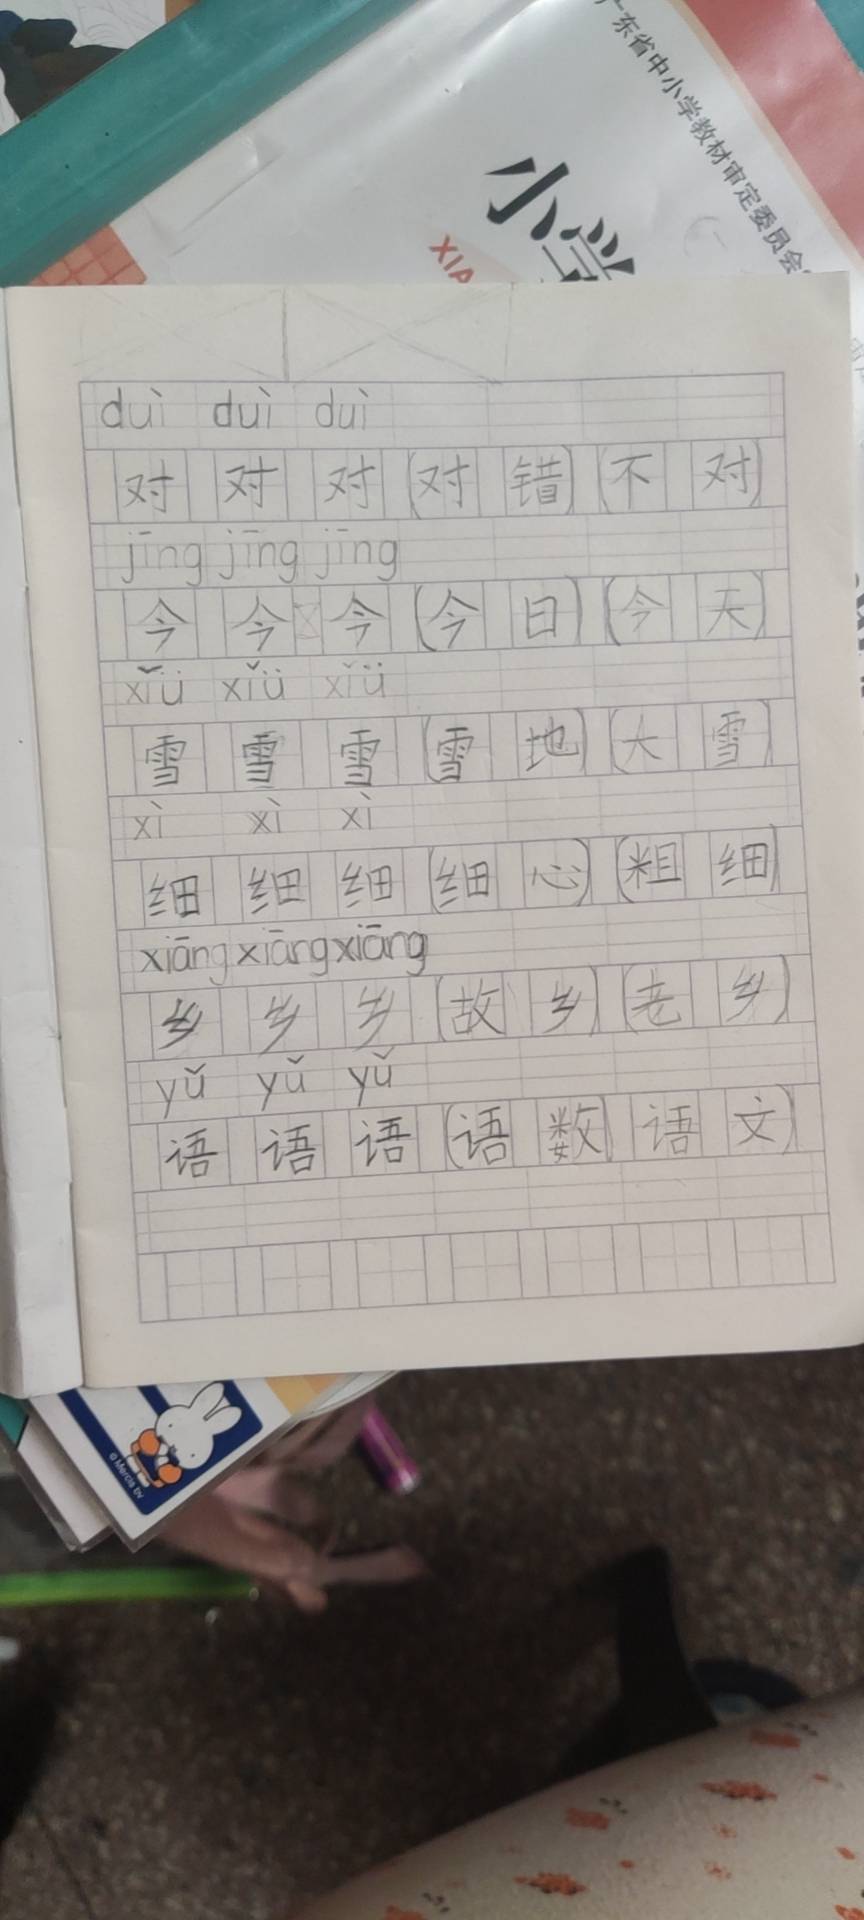 广东省中小学教材审定委员会
小学
XIA
duì duì duì
对 对 对 (对 错) (不 对)
jīng jīng jīng
今 今 今 (今 日) (今 天)
xǐü xǐü xǐü
雪 雪 雪 (雪 地) (大 雪)
xì xì xì
细 细 细 (细 心) (粗 细)
xiāng xiāng xiāng
乡 乡 乡 (故 乡) (老 乡)
yǔ yǔ yǔ
语 语 语 (语 数) 语 文)
© Mercis bv